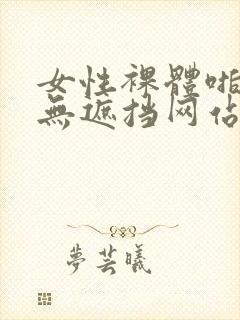 女性裸體啪
無遮挡网佔
夢芸曦